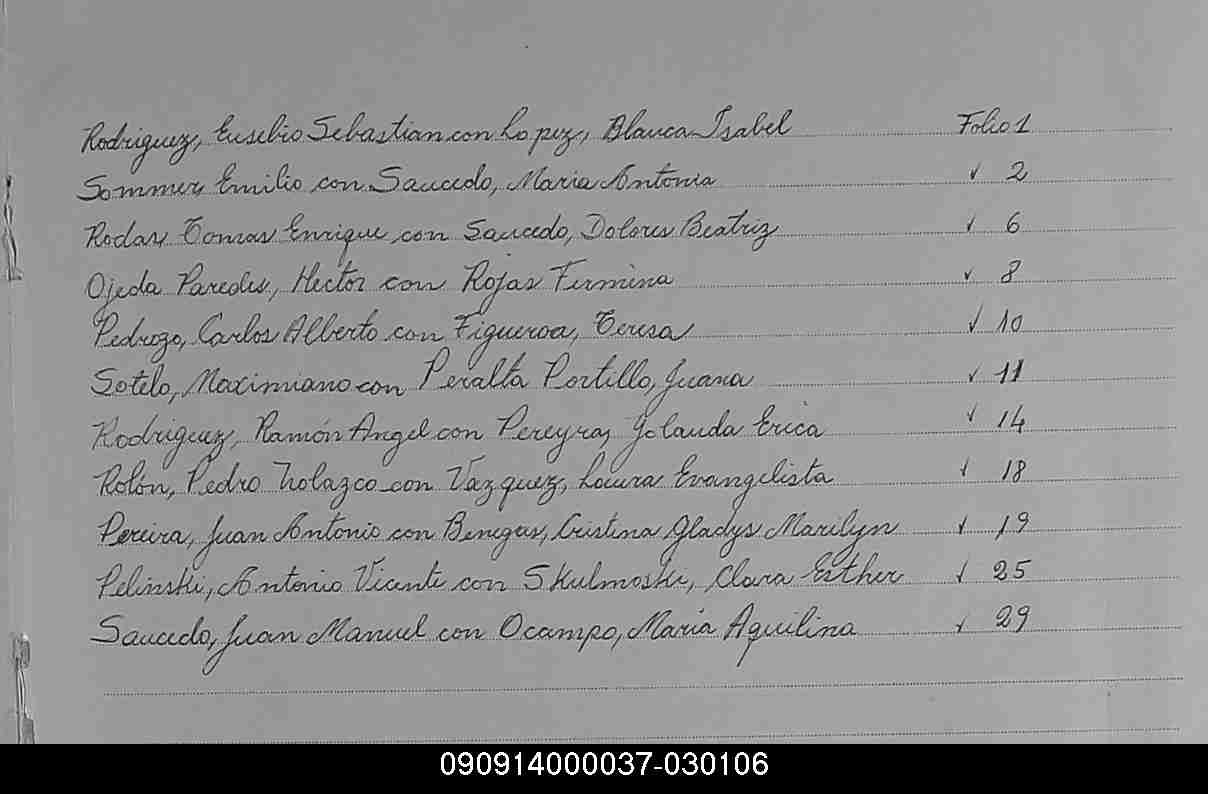 Rodriguez, Eusebio Sebastian con Lopez, Blanca Isabel Folio 1
Sommer, Emilio con Saucedo, Maria Antonia √ 2
Rodas Tomas Enrique con Saucedo, Dolores Beatriz √ 6
Ojeda Paredes, Hector con Rojas Fermina √ 8
Pedrozo, Carlos Alberto con Figueroa, Teresa √ 10
Sotelo, Maximiano con Peralta Portillo, Juana √ 11
Rodriguez, Ramón Angel con Pereyra, Yolanda Erica √ 14
Rolón, Pedro Nolazco con Vazquez, Laura Evangelista √ 18
Pereira, Juan Antonio con Benegas, Cristina Gladys Marilyn √ 19
Pelinski, Antonio Vicente con Skulmoski, Clara Esther √ 25
Saucedo, Juan Manuel con Ocampo, Maria Aquilina √ 29
090914000037-030106